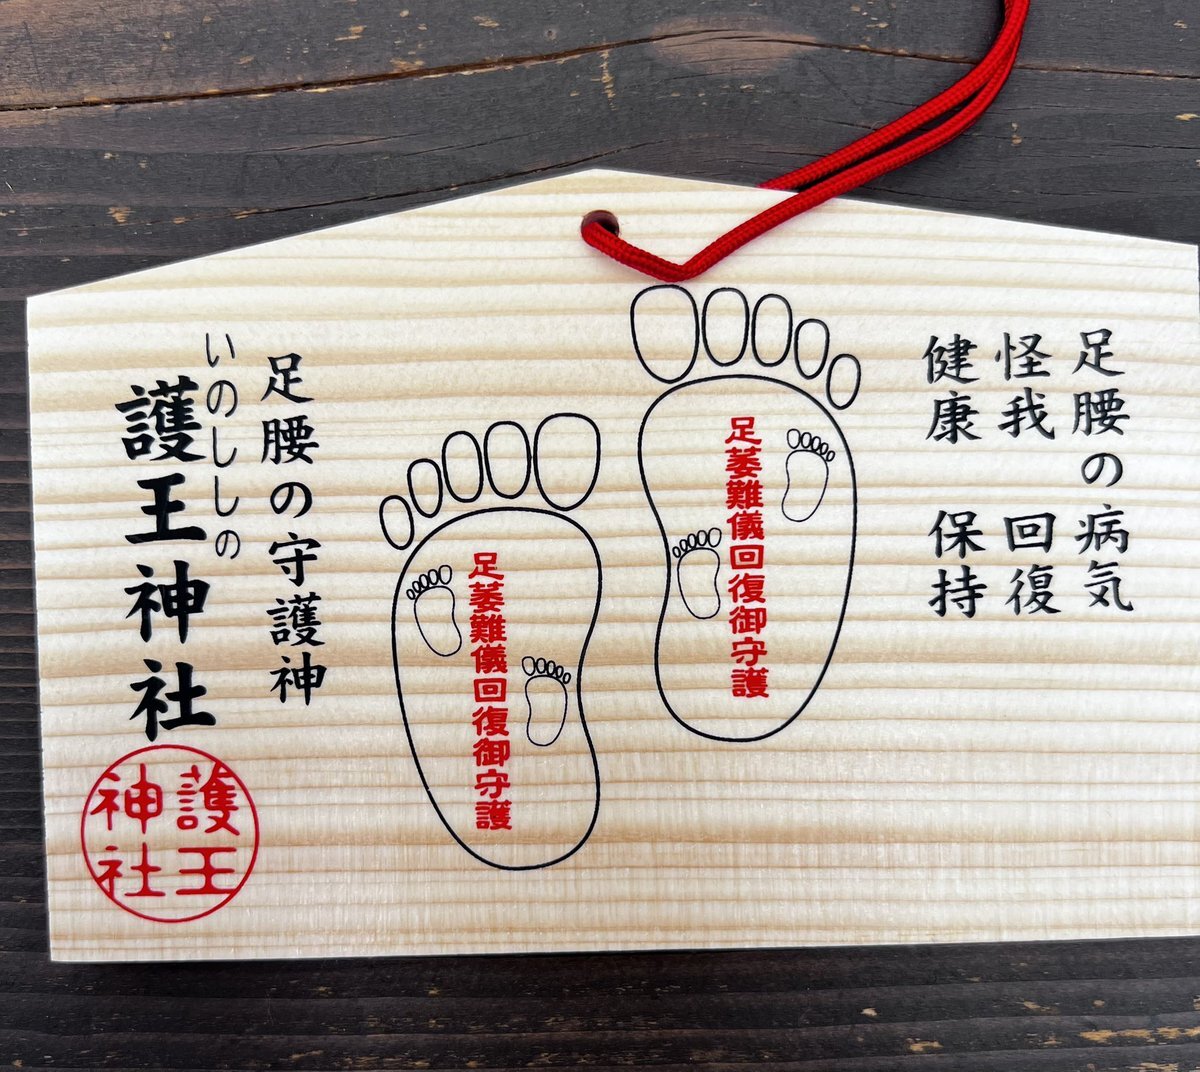 足腰の病気
怪我 回復
健康 保持
足萎難儀回復御守護
足萎難儀回復御守護
足腰の守護神
いのししの
護王神社
護王
神社